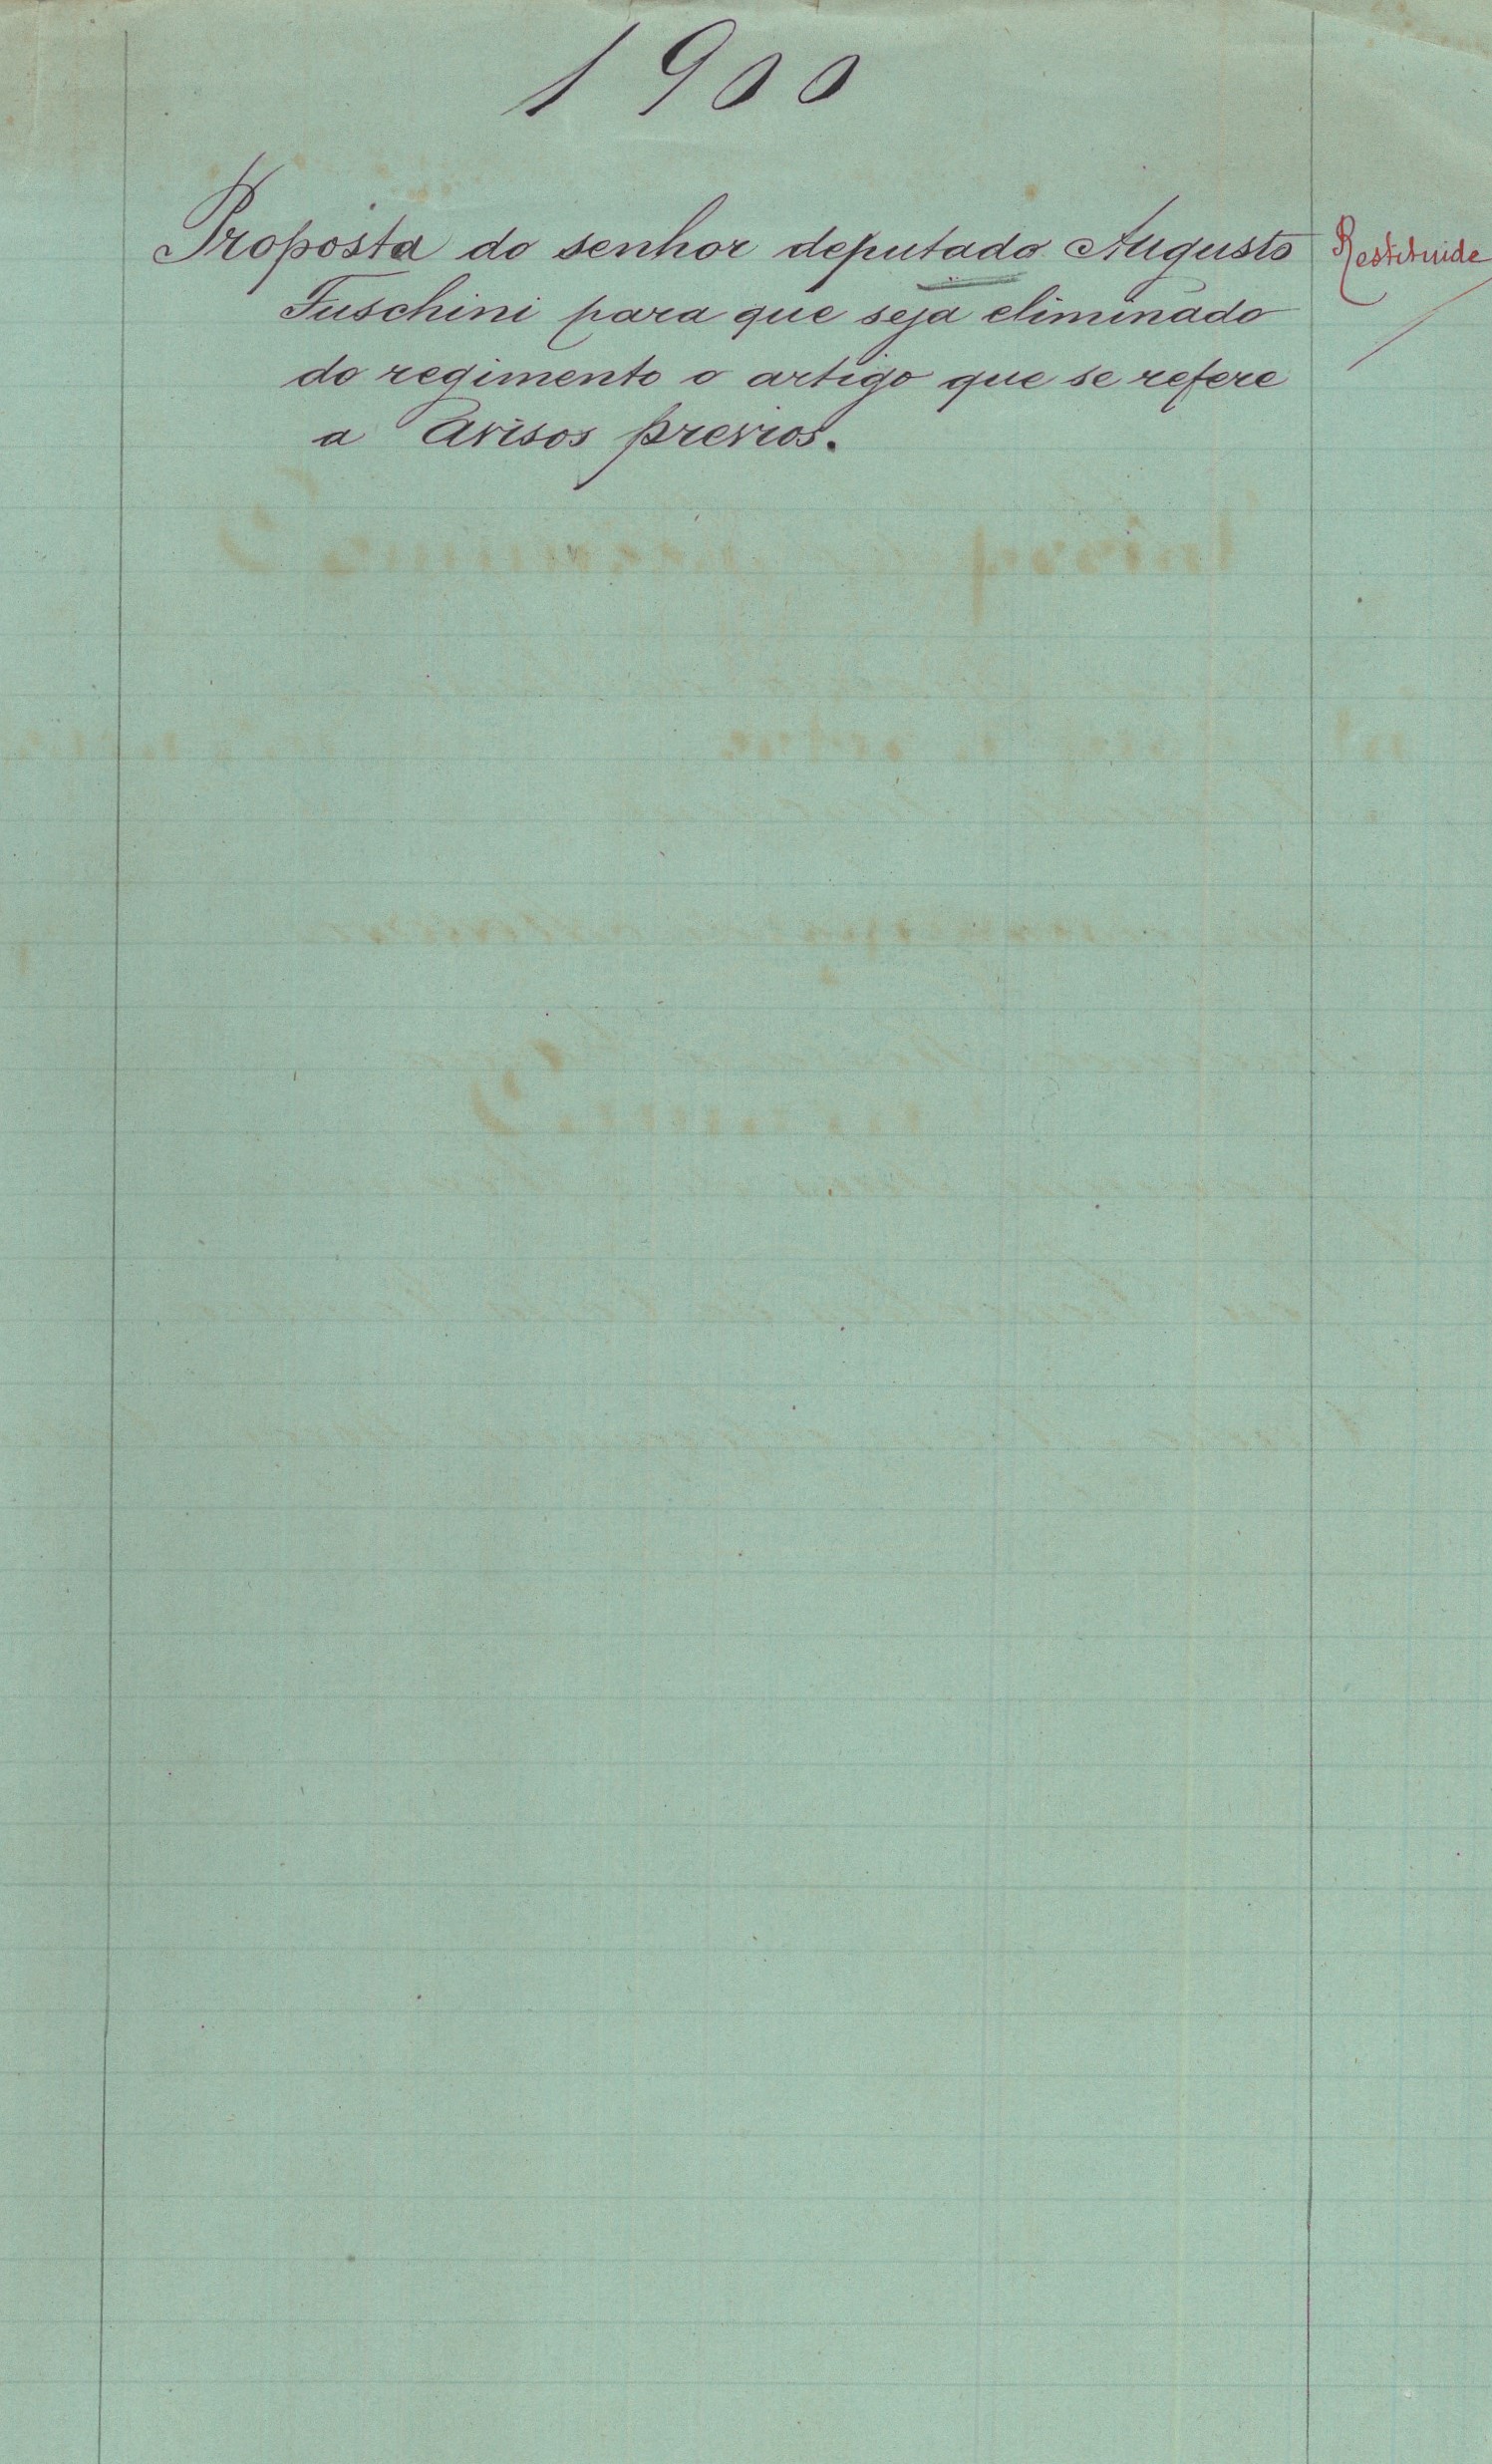 1900
Proposta do senhor deputado Augusto
Fuschini para que seja eliminado
do regimento o artigo que se refere
a Avisos previos.
Restituide